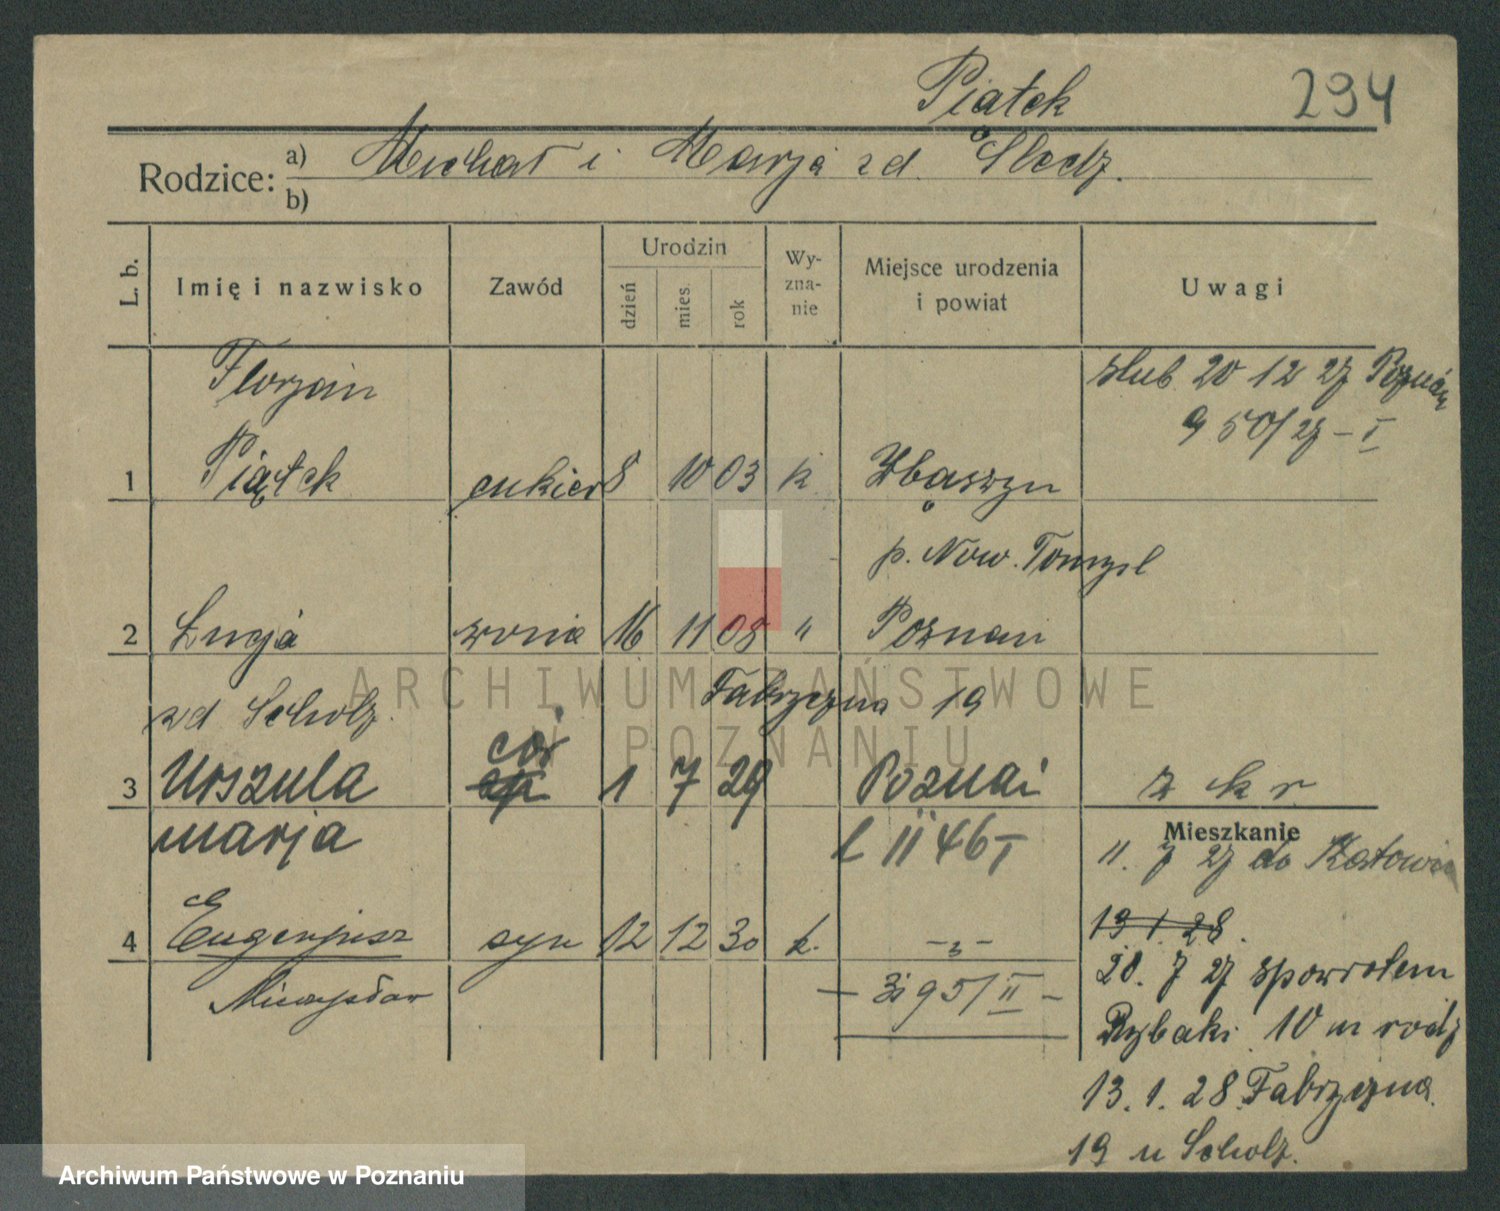 Piątek 294
Rodzice: a) Michał i Marja zd. Śledz.
b)
L. b. Imię i nazwisko Zawód Urodzin dzień mies. rok Wy-zna-nie Miejsce urodzenia i powiat Uwagi
Florjan ślub 20 12 27 Poznań
950/27 - I
1 Piątek cukier 8 10 03 k Zbąszyn
p. Now. Tomyśl
2 Łucja żona 16 11 08 " Poznań
zd Scholz Fabryczna 19
cór
3 Urszula 1 7 29 Poznań z k r
marja l II 46 I
Mieszkanie
11. 7 27 do Katowic
4 Eugenjusz syn 12 12 30 k. - " -
19 1. 28.
Mieczysław 3195/II -
20. 7 27 spowrotem
Rybaki 10 u rodz
13. 1. 28 Fabryczna
19 u Scholz.
ARCHIWUM PAŃSTWOWE
W POZNANIU
Archiwum Państwowe w Poznaniu